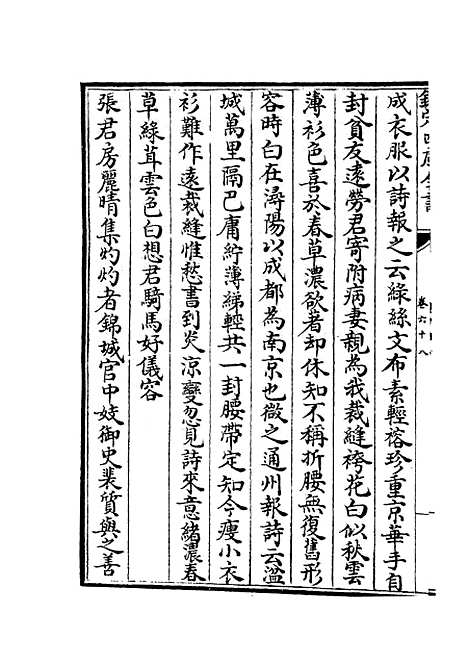 欽定四庫全書
卷六十八
成衣服以詩報之云綠絲文布素輕褣珍重京華手自
封貧友遠勞君寄附病妻親為我裁縫袴花白似秋雲
薄衫色喜於春草濃欲著却休知不稱折腰無復舊形
容時白在潯陽以成都為南京也微之通州報詩云湓
城萬里隔巴庸紵薄綈輕共一封腰帶定知今瘦小衣
衫難作遠裁縫惟愁書到炎涼變忽見詩來意緒濃春
草綠茸雲色白想君騎馬好儀容
張君房麗晴集灼灼者錦城官中妓御史裴質與之善